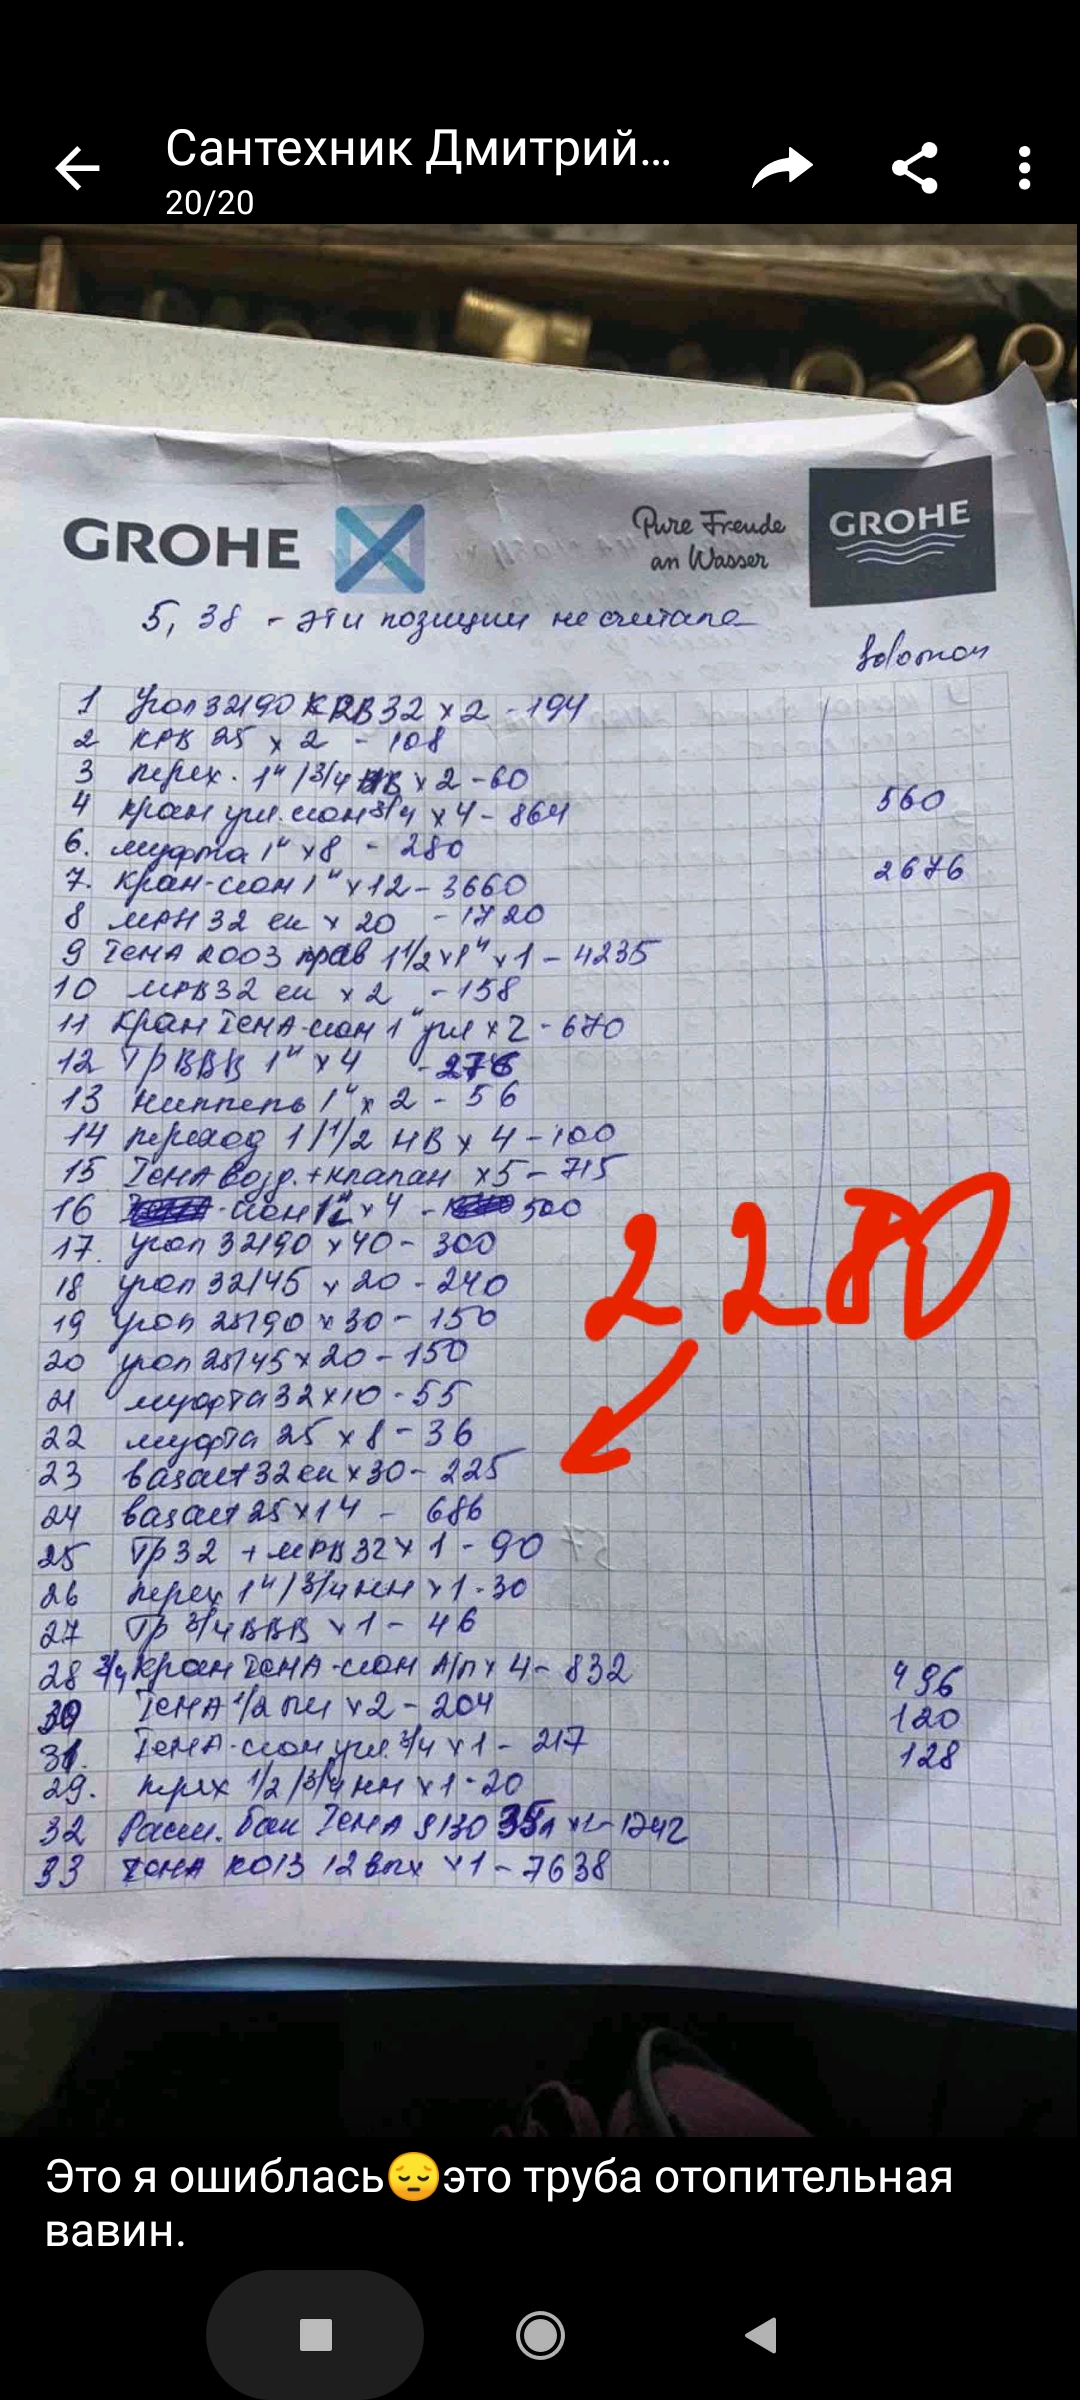 Сантехник Дмитрий...
20/20
GROHE
Pure Freude
an Wasser
GROHE
5, 38 - эти позиции не считала
Solomon
1 Угол 32/90 КРВ 32 x 2 - 194
2 КРВ 25 x 2 - 108
3 перех. 1"/3/4 x 2 - 60
4 кран угл. сион 3/4 x 4 - 864 560
6. муфта 1" x 8 - 280
7. кран-сион 1" x 12 - 3660 2676
8 МРН 32 ек x 20 - 1720
9 ICMA K003 1 1/2 x 1" x 1 - 4235
10 МРВ 32 ек x 2 - 158
11 Кран ICMA-сион 1" угл x 2 - 670
12 ТР ВВВ 1" x 4 - 276
13 ниппель 1" x 2 - 56
14 переход 1/1/2 НВ x 4 - 100
15 ICMA возд. + клапан x 5 - 715
16 -сион x 4 - 500
17. угол 32/90 x 40 - 300
18 угол 32/45 x 20 - 240
19 угол 25/90 x 30 - 150
20 угол 25/45 x 20 - 150
21 муфта 32 x 10 - 55
22 муфта 25 x 8 - 36
23 basalt 32 ек x 30 - 225
2280
24 basalt 25 x 14 - 686
25 Тр 32 + МРВ 32 x 1 - 90
26 перех 1"/3/4 нн x 1 - 30
27 Тр 3/4 ВВВ x 1 - 46
28 3/4 Кран ICMA-сион А/П x 4 - 832 496
30 ICMA 1/2 x 2 - 204 120
31. ICMA-сион угл. 3/4 x 1 - 217 128
29. перех 1/2/3/4 нн x 1 - 20
32 Расш. бак ICMA 9130 35л x 1 - 1242
33 ICMA K013 12 вых x 1 - 7638
Это я ошиблась😔это труба отопительная
вавин.